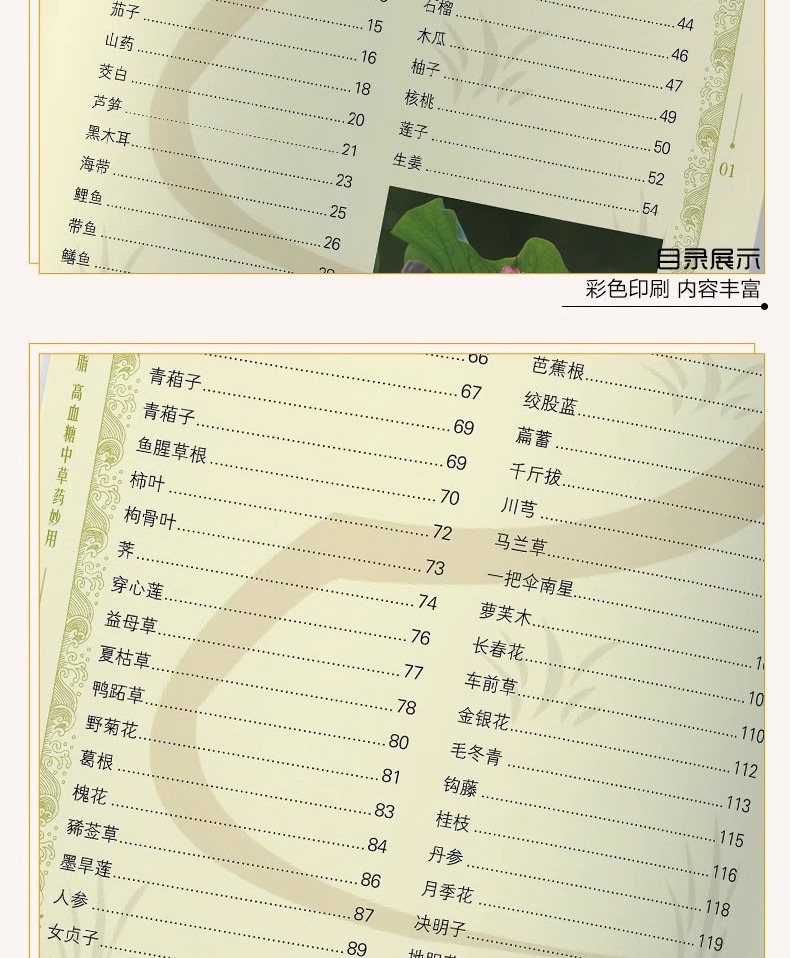 茄子 16
15
山药 18
茭白 20
芦笋 21
黑木耳 23
海带 25
鲤鱼 26
带鱼
鳝鱼
44
石榴 46
木瓜 47
柚子 49
核桃 50
莲子 52
生姜 54
01
目录展示
彩色印刷 内容丰富
脂 高血糖中草药妙用
66
67
青葙子 69
青葙子 69
鱼腥草根 70
柿叶 72
枸骨叶 73
荠 74
穿心莲 76
益母草 77
夏枯草 78
鸭跖草 80
野菊花 81
葛根 83
槐花 84
豨莶草 86
墨旱莲 87
人参 89
女贞子
芭蕉根
绞股蓝
萹蓄
千斤拔
川芎
马兰草
一把伞南星
萝芙木
长春花
车前草 110
金银花 112
毛冬青 113
钩藤 115
桂枝 116
丹参 118
月季花 119
决明子